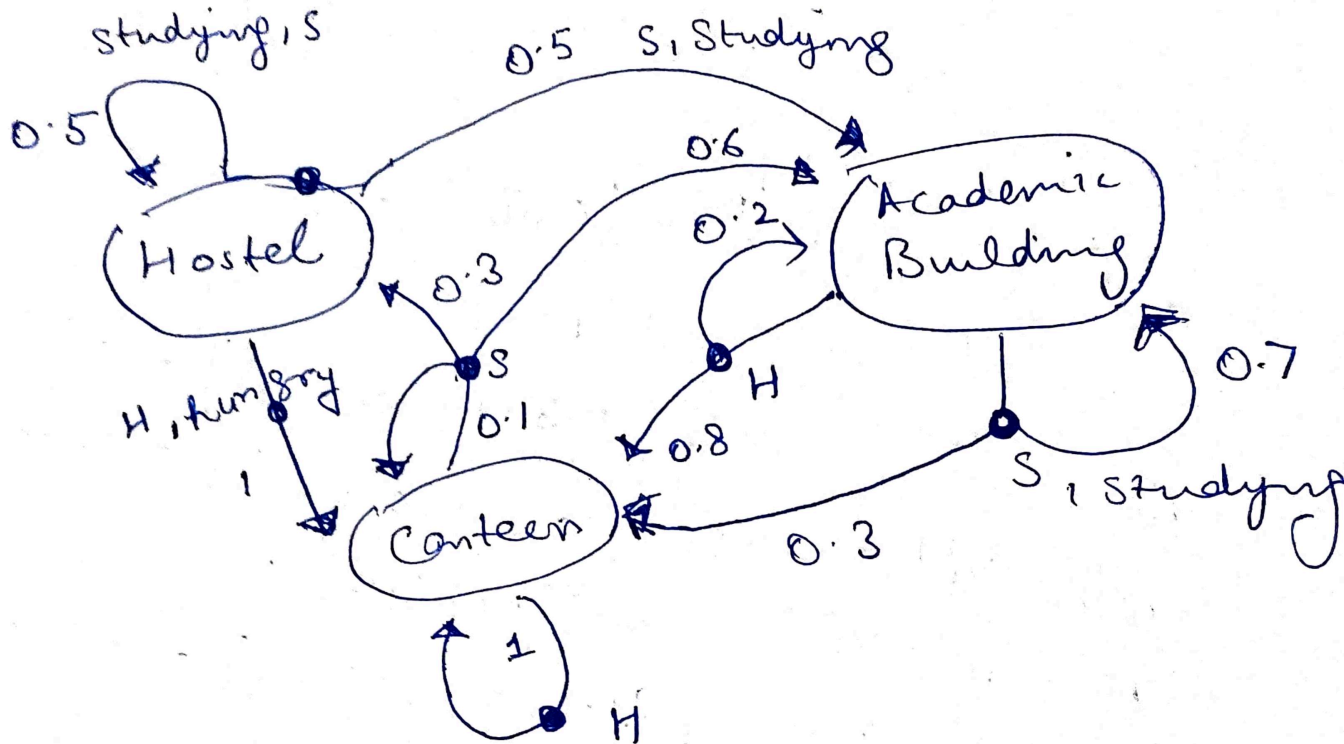 Studying, S
0.5 S, Studying
0.5
0.6
Academic
Building
0.2
Hostel
0.3
S
H
0.7
H, hungry
0.1
0.8
1
S, Studying
Canteen
0.3
1
H